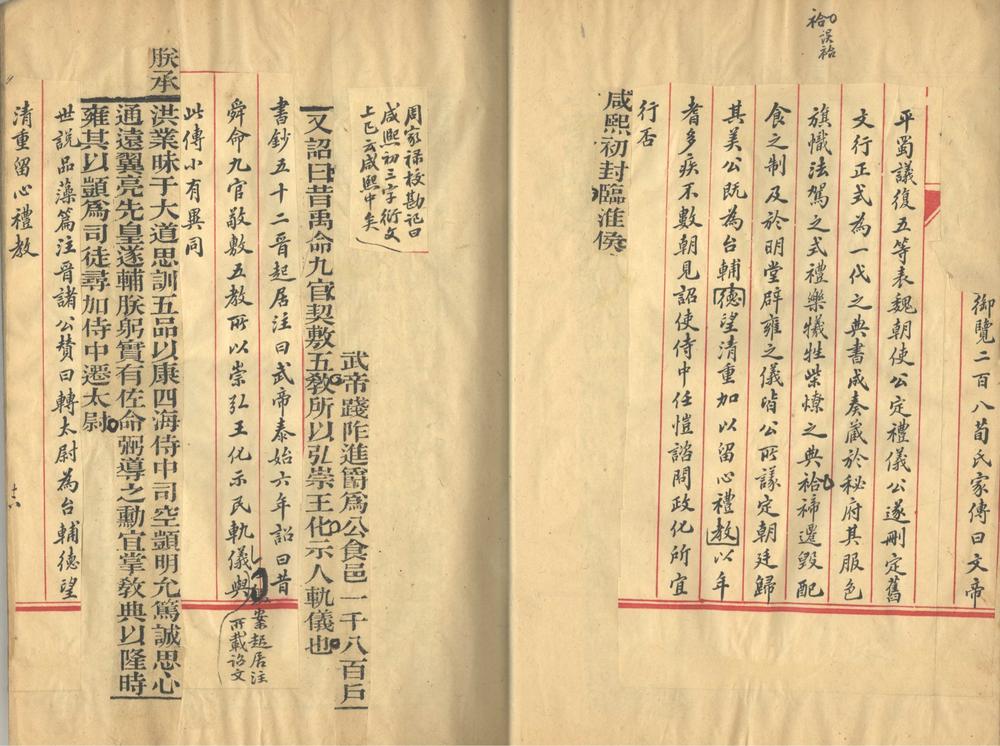 祫誤袷
御覽二百八荀氏家傳曰文帝
平蜀議復五等表魏朝使公定禮儀公遂刪定舊
文行正式為一代之典書成奏藏於秘府其服色
旗幟法駕之式禮樂犧牲柴燎之典袷禘遷毀配
食之制及於明堂辟雍之儀皆公所議定朝廷歸
其美公既為台輔德望清重加以留心禮教以年
耆多疾不數朝見詔使侍中任愷諮問政化所宜
行否
咸熙初封臨淮侯
周家祿校勘記曰
咸熙初三字衍文
上已云咸熙中矣
武帝踐阼進爵為公食邑一千八百戶
又詔曰昔禹命九官契敷五敎所以弘崇王化示人軌儀也
書鈔五十二晉起居注曰武帝泰始六年詔曰昔
舜命九官敬敷五教所以崇弘王化示民軌儀與
案起居注
所載詔文
此傳小有異同
朕承
洪業昧于大道思訓五品以康四海侍中司空顗明允篤誠思心
通遠翼亮先皇遂輔朕躬實有佐命弼導之勳宜掌敎典以隆時
雍其以顗為司徒尋加侍中遷太尉
世說品藻篇注晉諸公贊曰轉太尉為台輔德望
清重留心禮教